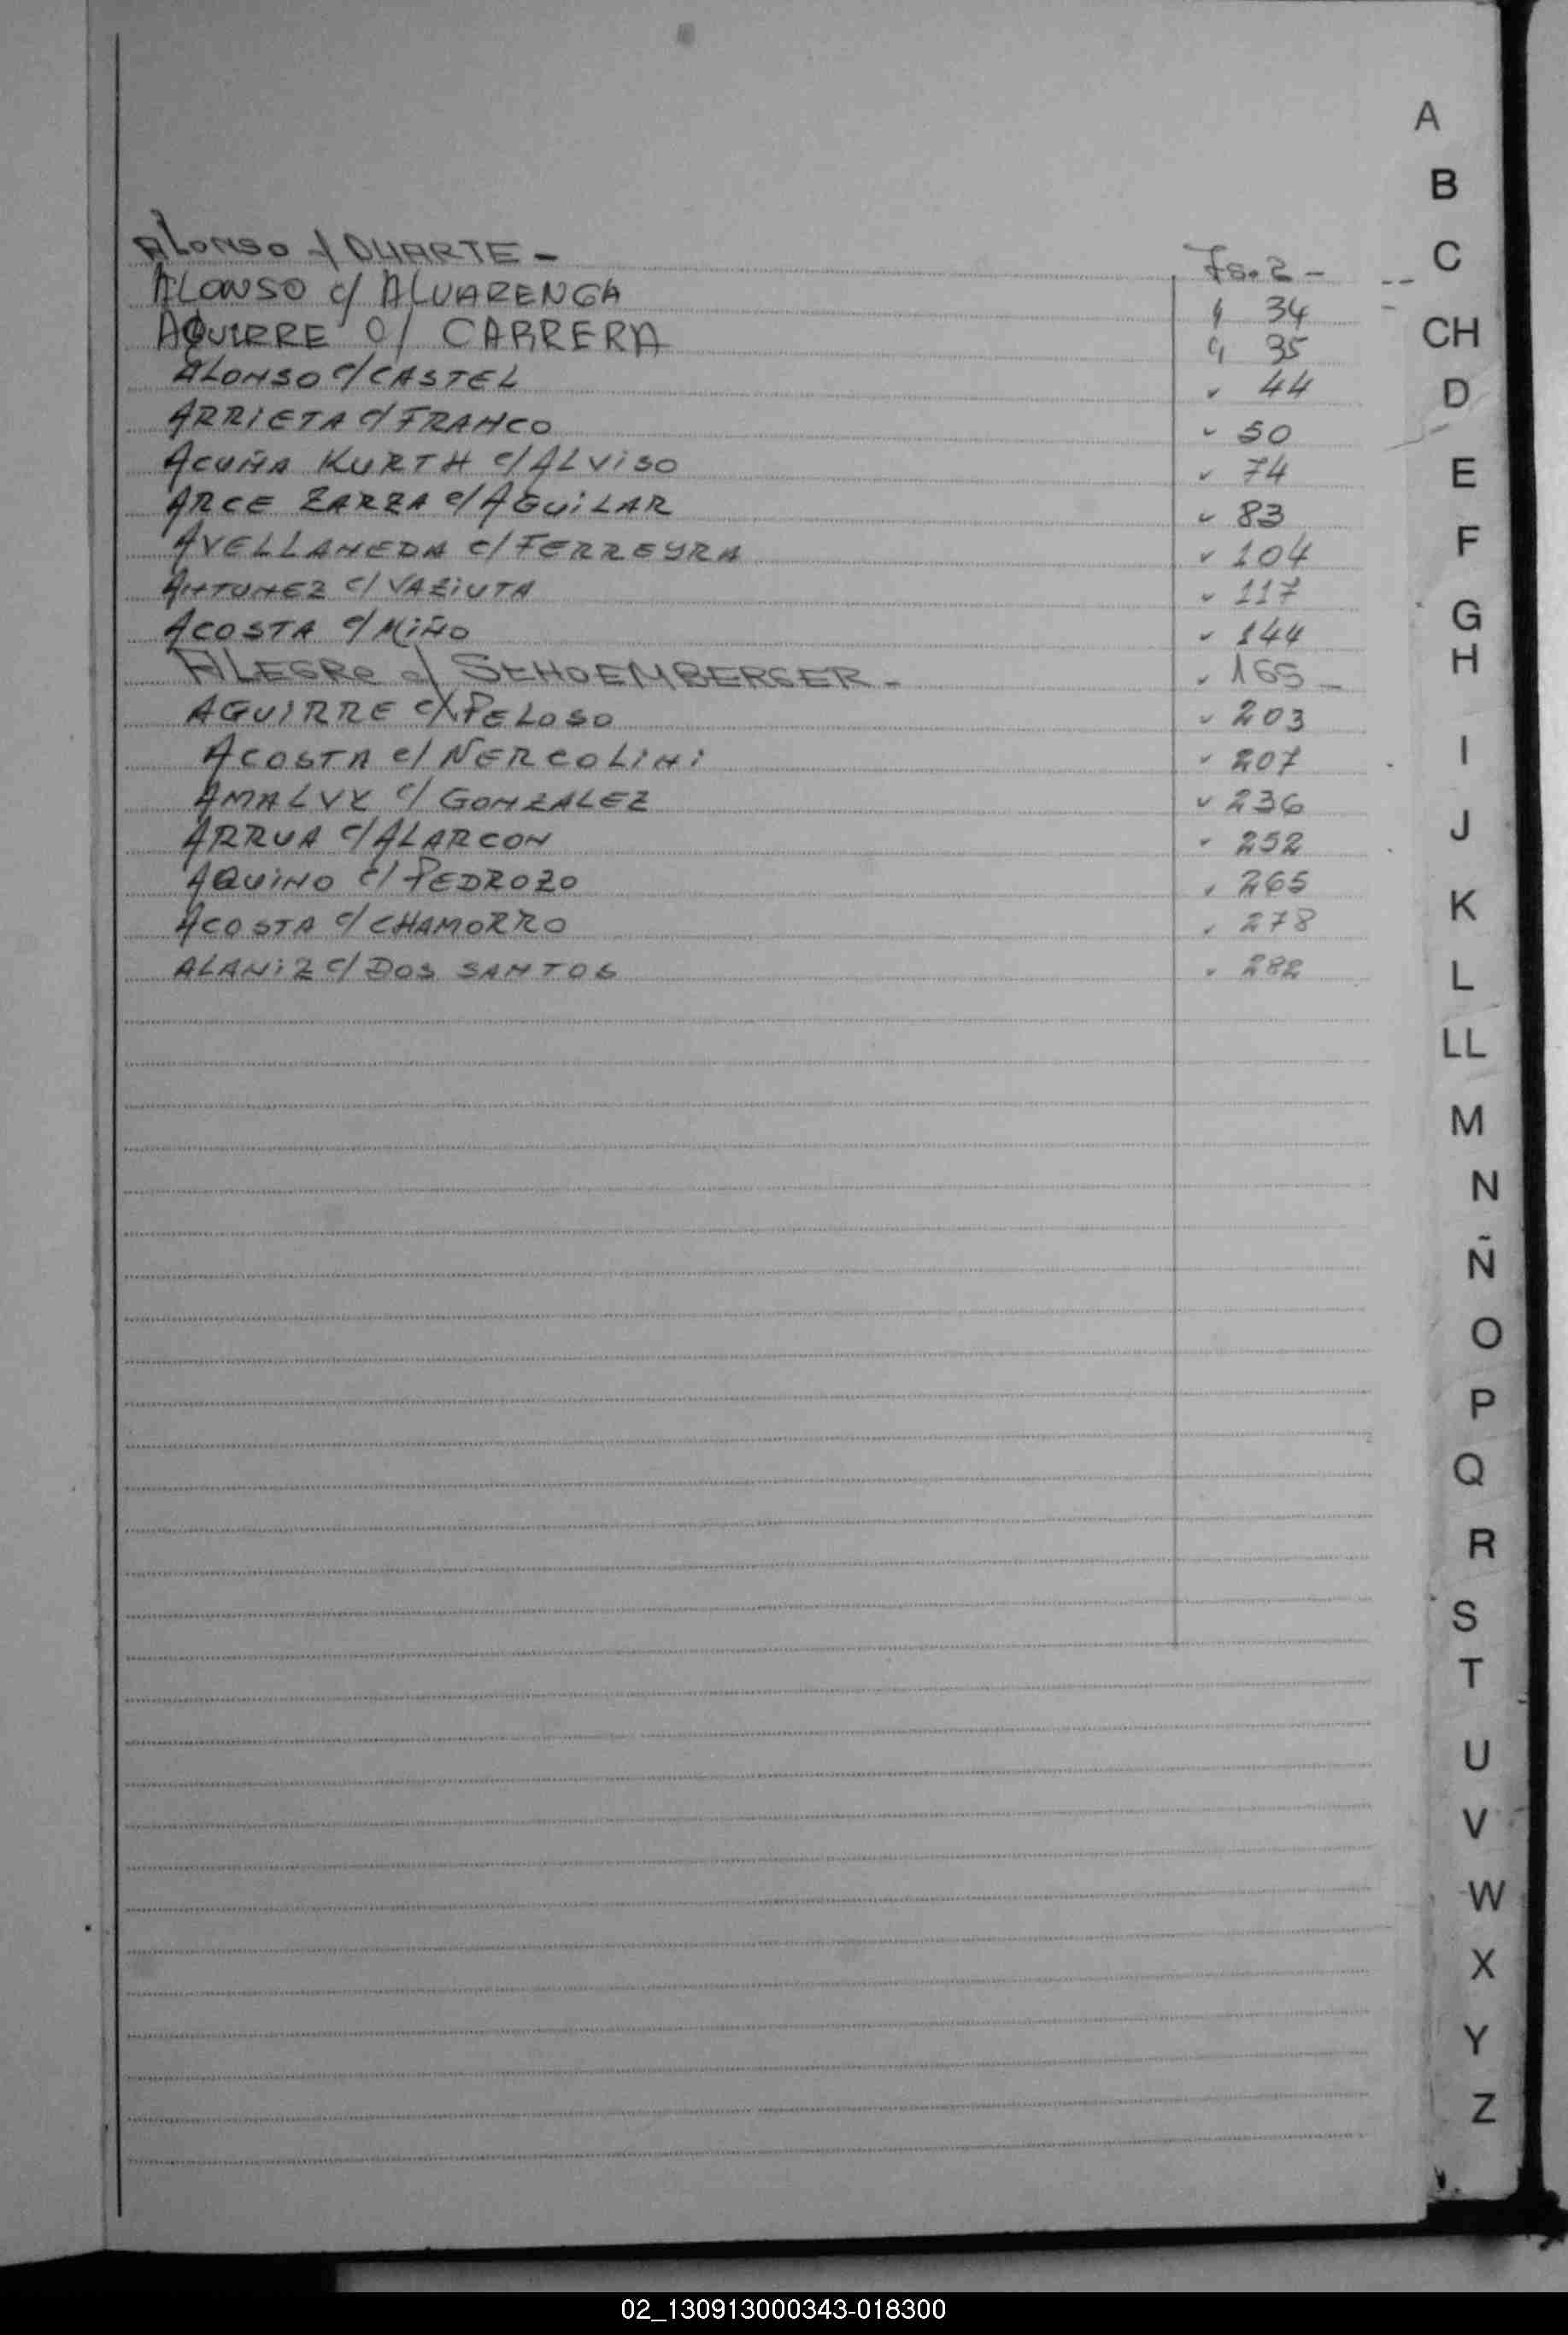 A
B
C
CH
D
E
F
G
H
I
J
K
L
LL
M
N
Ñ
O
P
Q
R
S
T
U
V
W
X
Y
Z
Alonso c/ DUARTE - Fs. 2 -
ALONSO c/ ALVARENGA " 34
AQUIRRE c/ CABRERA " 35
ALONSO c/ CASTEL " 44
ARRIETA c/ FRANCO " 50
ACUÑA KURTH c/ ALVISO " 74
ARCE ZARZA c/ AGUILAR " 83
AVELLANEDA c/ FERREYRA " 104
ANTUNEZ c/ VAZIUTA " 117
ACOSTA c/ MIÑO " 144
ALEGRE c/ SCHOEMBERGER - " 165 -
AGUIRRE c/ PELOSO " 203
ACOSTA c/ NERCOLINI " 207
AMALVY c/ GONZALEZ " 236
ARRUA c/ ALARCON " 252
AQUINO c/ PEDROZO " 265
ACOSTA c/ CHAMORRO " 278
ALANIZ c/ DOS SANTOS " 282
02_130913000343-018300